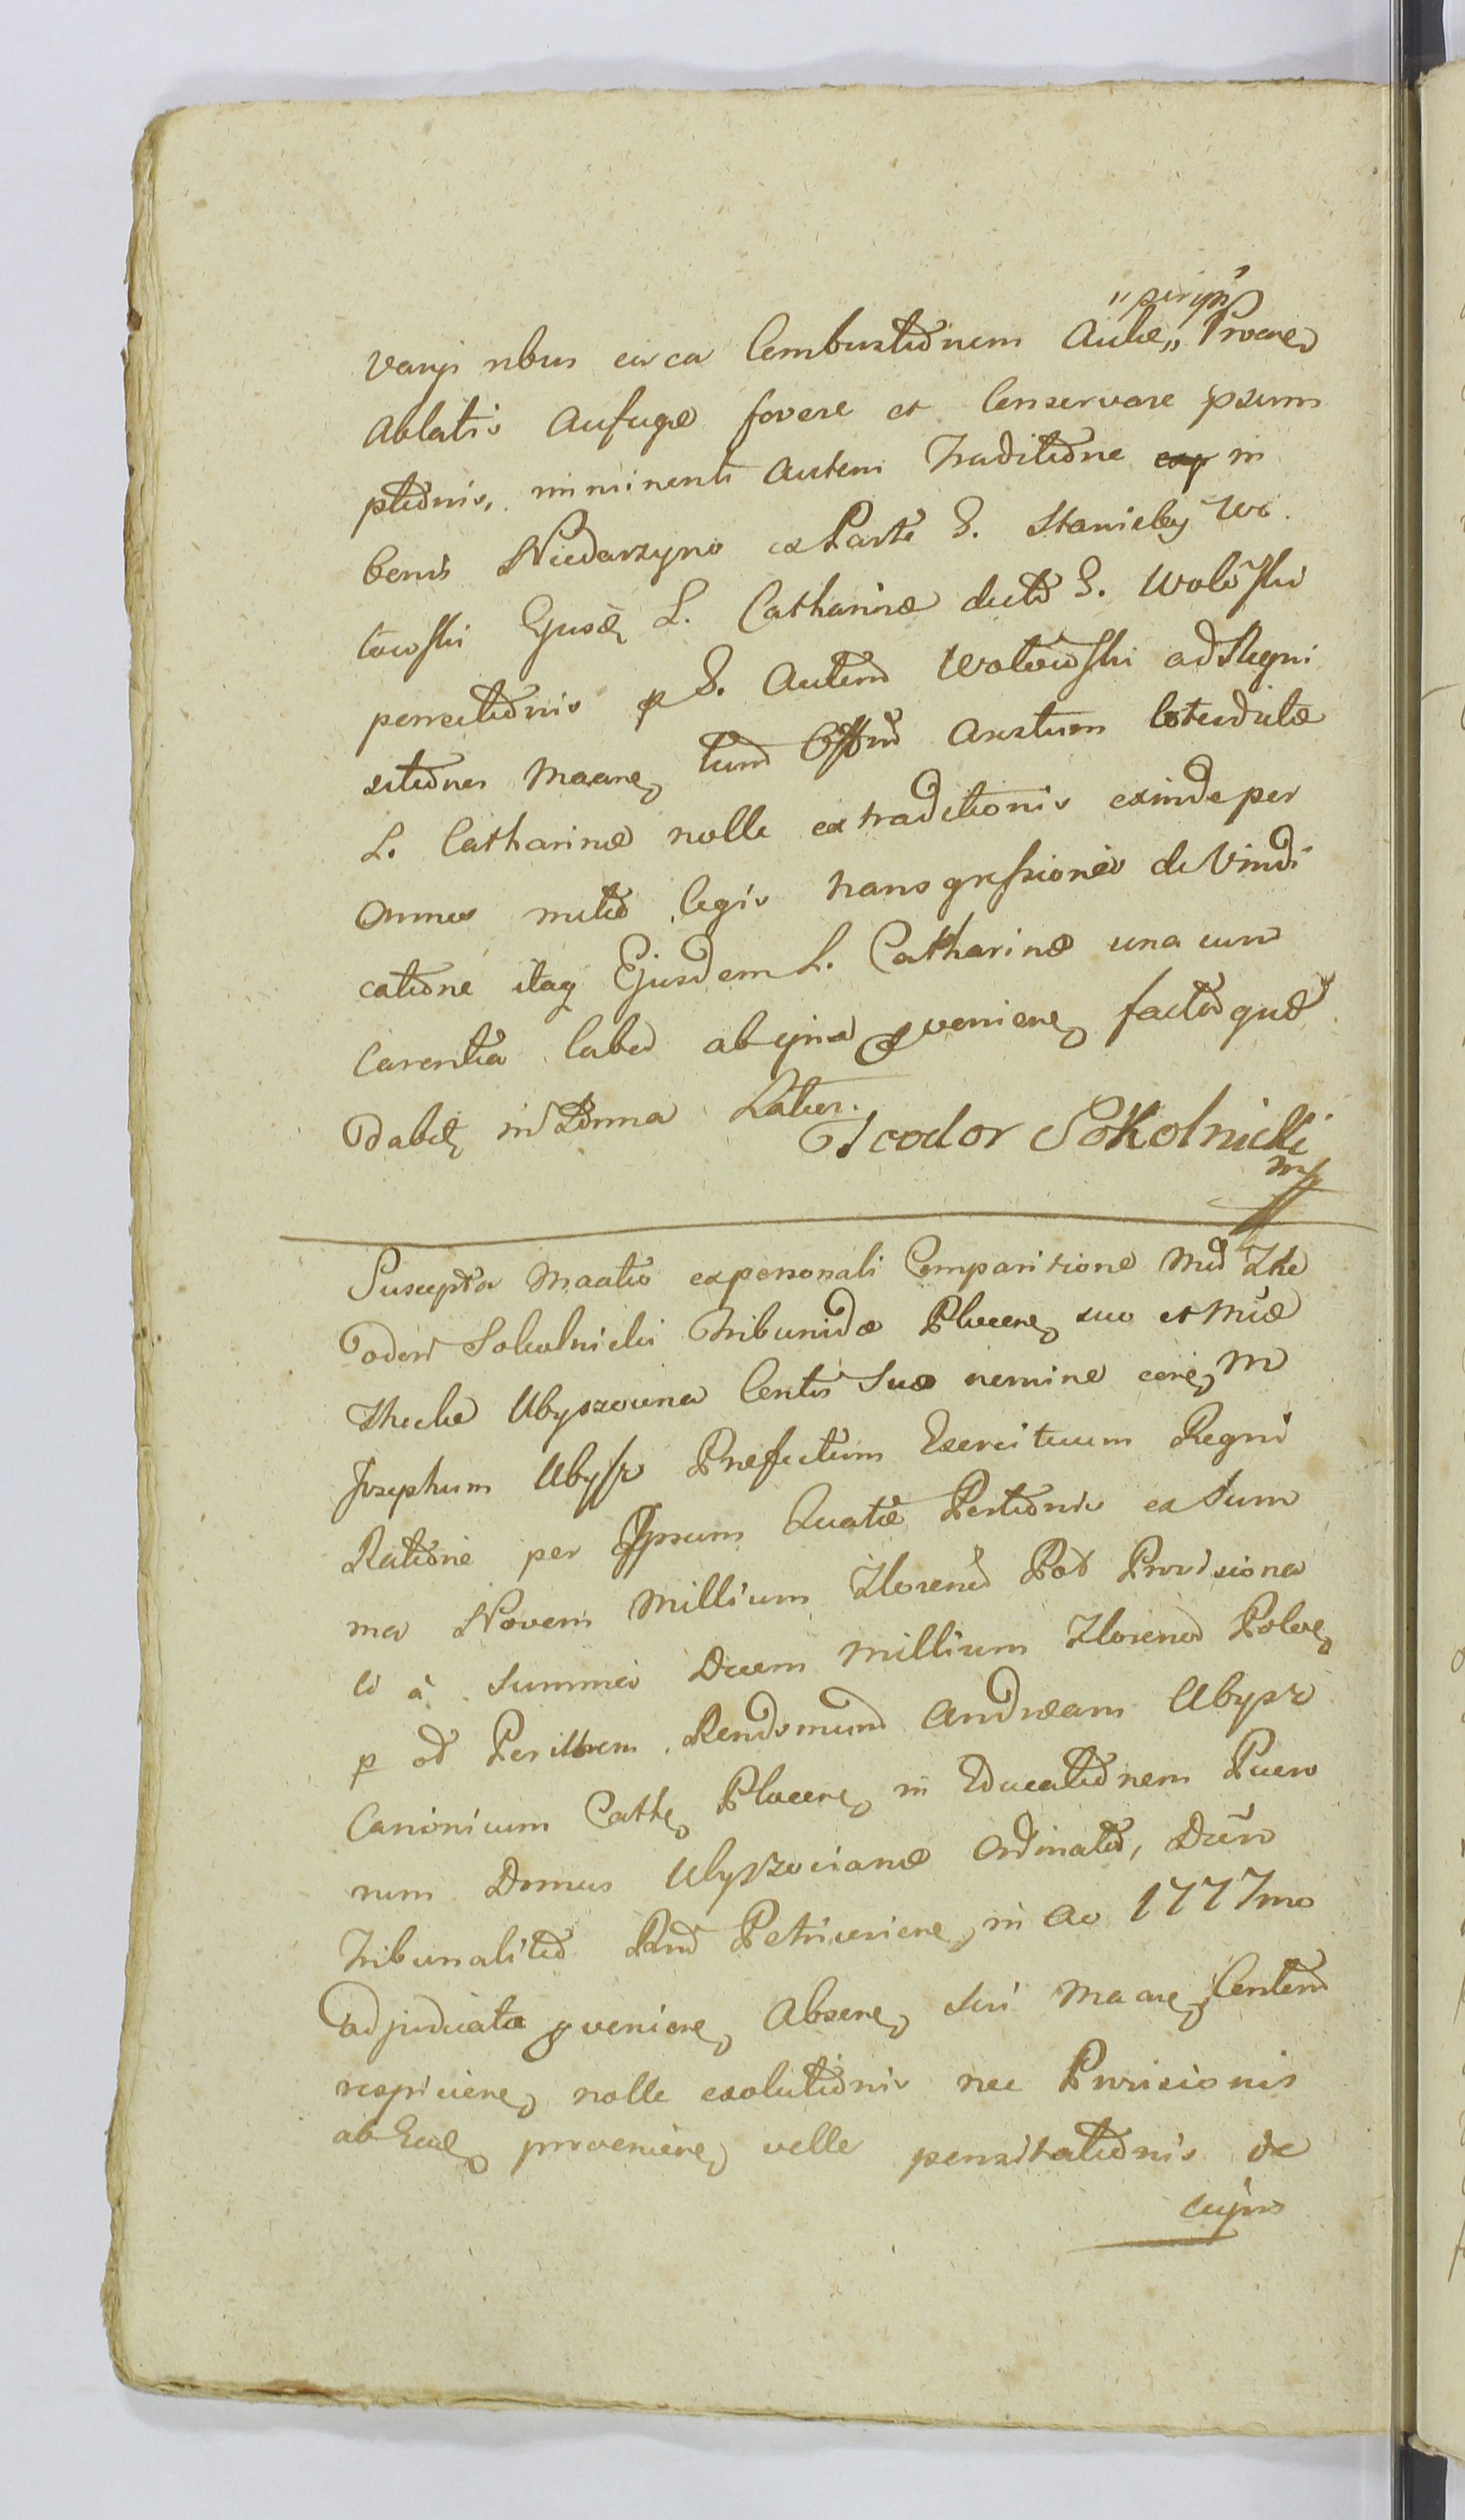 "periys"
varys rbus circa Combustionem Aulæ,, Procere
Ablatis Aufugæ fovere et Conservare psum
ptionis, imminenti autem Traditione in
bonis Niedarzyno ex Parte G. Stanisley Wo
towski Ejusd L. Catharinæ dicto G. Wolowski
perrectionis p G. Autem Wolowski ad Regni
sitiones Maare, tum Offm Arestum
L. Catharinæ nolle extraditionis exinde per
Omnes legis transgressiones de Vindi
catione itaq Ejusdem L. Catharinæ una cum
Carentia Labo ab veniene, factoque
Dabit, in Latius.
Teodor Sokolnicki
mp
Suscepta Maatio ex personali Comparitione Md The
odori Sokolnicki Tribunidæ Plocene, suo et
Theclæ Ubyszowna Contis Suæ nemine M
Josephum Ubysz Præfectum Exercituum Regni
Ratione per Ipsum Quatæ Portionis ex Sum
ma Novem Millium Florend Pol Provisiona
li à Summis Duem Millium Florend Polve,
p od Perillrem Rendsmund Andream Ubysz
Canonicum Cath, Plocene, in Educationem Puero
rum Domus Ubyszocianæ Ordinato, Dum
Tribunalitio Rnd Petricoviene, in Ao 1777mo
adjudicata veniene, Absene, sui Maare, Content
respiciene, nolle exolutionis nec Provisionis
ab Ead, proveniene, velle pensitationis de
cujus